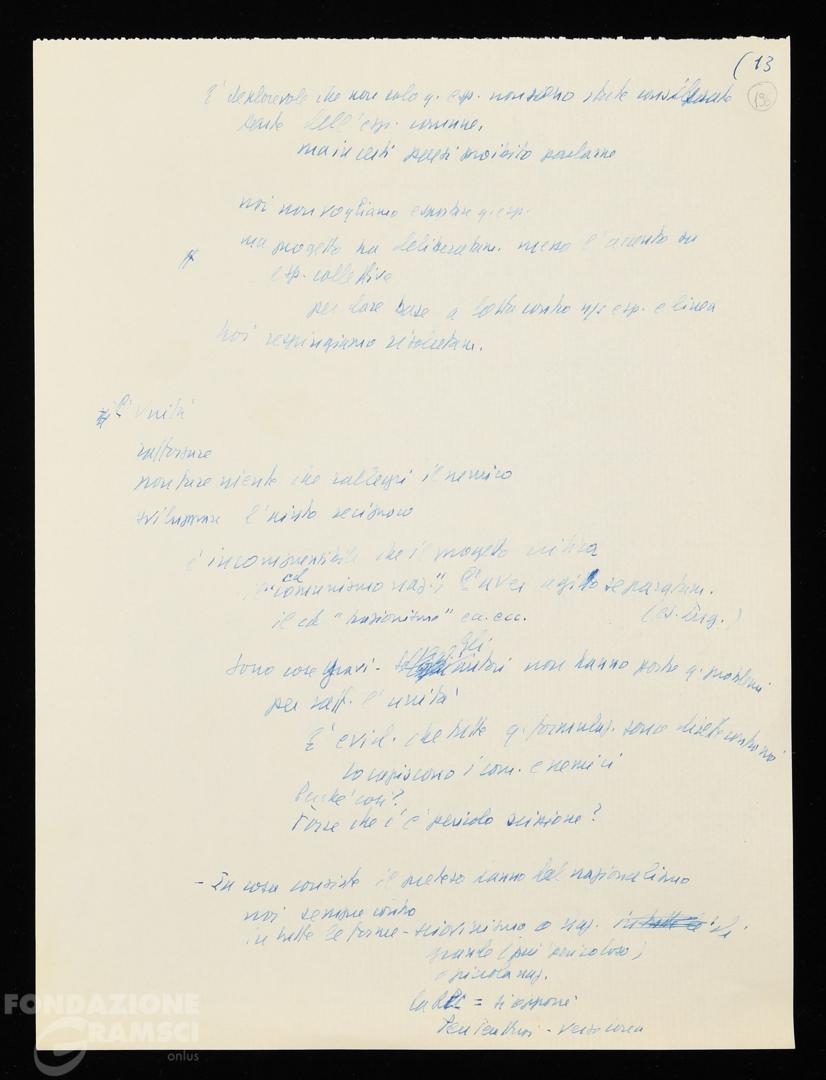 (13
196
E' deplorevole che non solo q. esp. non siano state considerate
parte dell'esp. comune,
ma in certi paesi proibito parlarne
noi non vogliamo esportare q. esp.
ma progetto ha deliberatam. messo l'accento su
esp. collettiva
per dare base a lotta contro ns esp. e linea
Noi respingiamo risolutam.
L'Unità
rafforzare
non fare niente che rallegri il nemico
sviluppare l'aiuto reciproco
è incomprensibile che il progetto critica
il "cd comunismo naz.", l'aver agito separatam.
il cd "frazionismo" ecc. ecc.
Sono cose gravi - gli autori non hanno posto q. problemi
per raff. l'unità
E' evid. che tutte q. formulaz. sono dirette contro noi
Lo capiscono i com. e nemici
Perché così?
Forse che c'è pericolo scissione?
- In cosa consiste il preteso danno del nazionalismo
noi sempre contro
in tutte le forme - sciovinismo o naz. di
grande (più pericoloso)
o piccola naz.
= si oppone